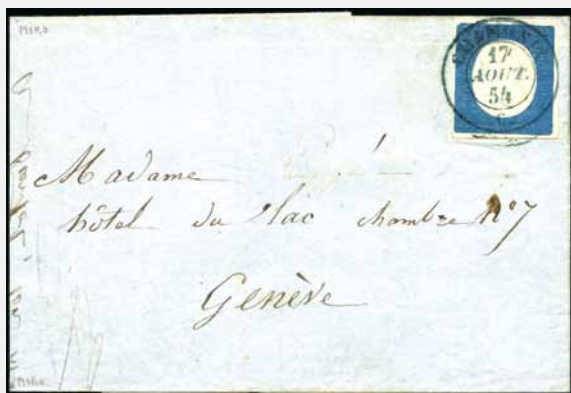 17
AOUT.
54
Madame
hôtel du lac chambre Nº 7
Genève